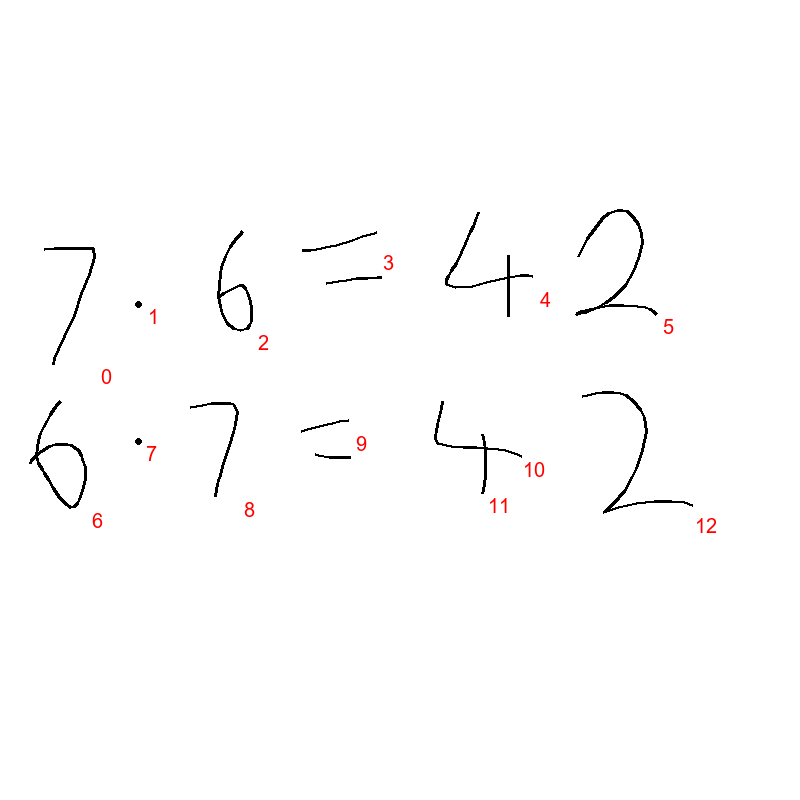 7 · 6 = 42
0 1 2 3 4 5
6 · 7 = 42
6 7 8 9 10 11 12